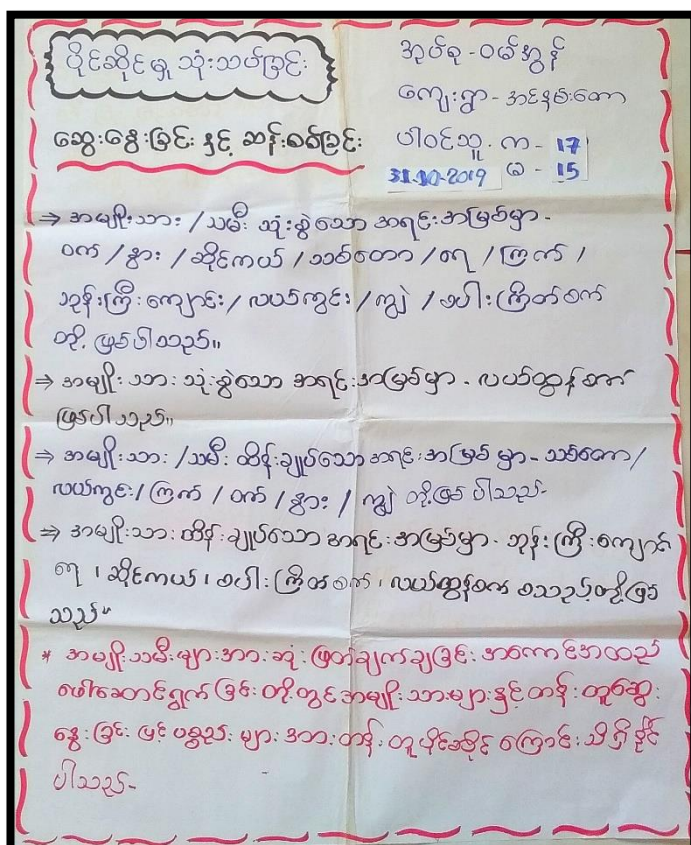 ပိုင်ဆိုင်မှု သုံးသပ်ခြင်း
ဆွေးနွေးခြင်း နှင့် ဆန်းစစ်ခြင်း
အုပ်စု - ဝမ်အွန်
ကျေးရွာ - အင်နမ်းတော
ပါဝင်သူ. က - 17
31.10-2019 မ - 15
⇒ အမျိုးသား /သမီး သုံးစွဲသော အရင်းအမြစ်မှာ -
ဝက် / နွား / ဆိုင်ကယ် / သစ်တော / ရေ / ကြက် /
ဘုန်းကြီးကျောင်း / လယ်ကွင်း / ကျွဲ / စပါးကြိတ်စက်
တို့ ဖြစ်ပါသည်။
⇒ အမျိုးသား သုံးစွဲသော အရင်းအမြစ်မှာ - လယ်ထွန်စက်
ဖြစ်ပါသည်။
⇒ အမျိုးသား /သမီး ထိန်းချုပ်သော အရင်းအမြစ် မှာ - သစ်တော /
လယ်ကွင်း / ကြက် / ဝက် / နွား / ကျွဲ တို့ဖြစ်ပါသည်-
⇒ အမျိုးသား ထိန်းချုပ်သော အရင်းအမြစ်မှာ - ဘုန်းကြီးကျောင်း
ရေ ၊ ဆိုင်ကယ် ၊ စပါးကြိတ်စက် ၊ လယ်ထွန်စက် စသည့်တို့ဖြစ်
သည်။
* အမျိုးသမီးများအား ဆုံးဖြတ်ချက်ချခြင်း အကောင်အထည်
ဖေါ်ဆောင်ရွက်ခြင်း တို့တွင် အမျိုးသားများနှင့် တန်းတူဆွေး
နွေးခြင်း ဖြင့် ပစ္စည်းများအား တန်းတူပိုင်ဆိုင် ကြောင်း သိရှိနိုင်
ပါသည်-